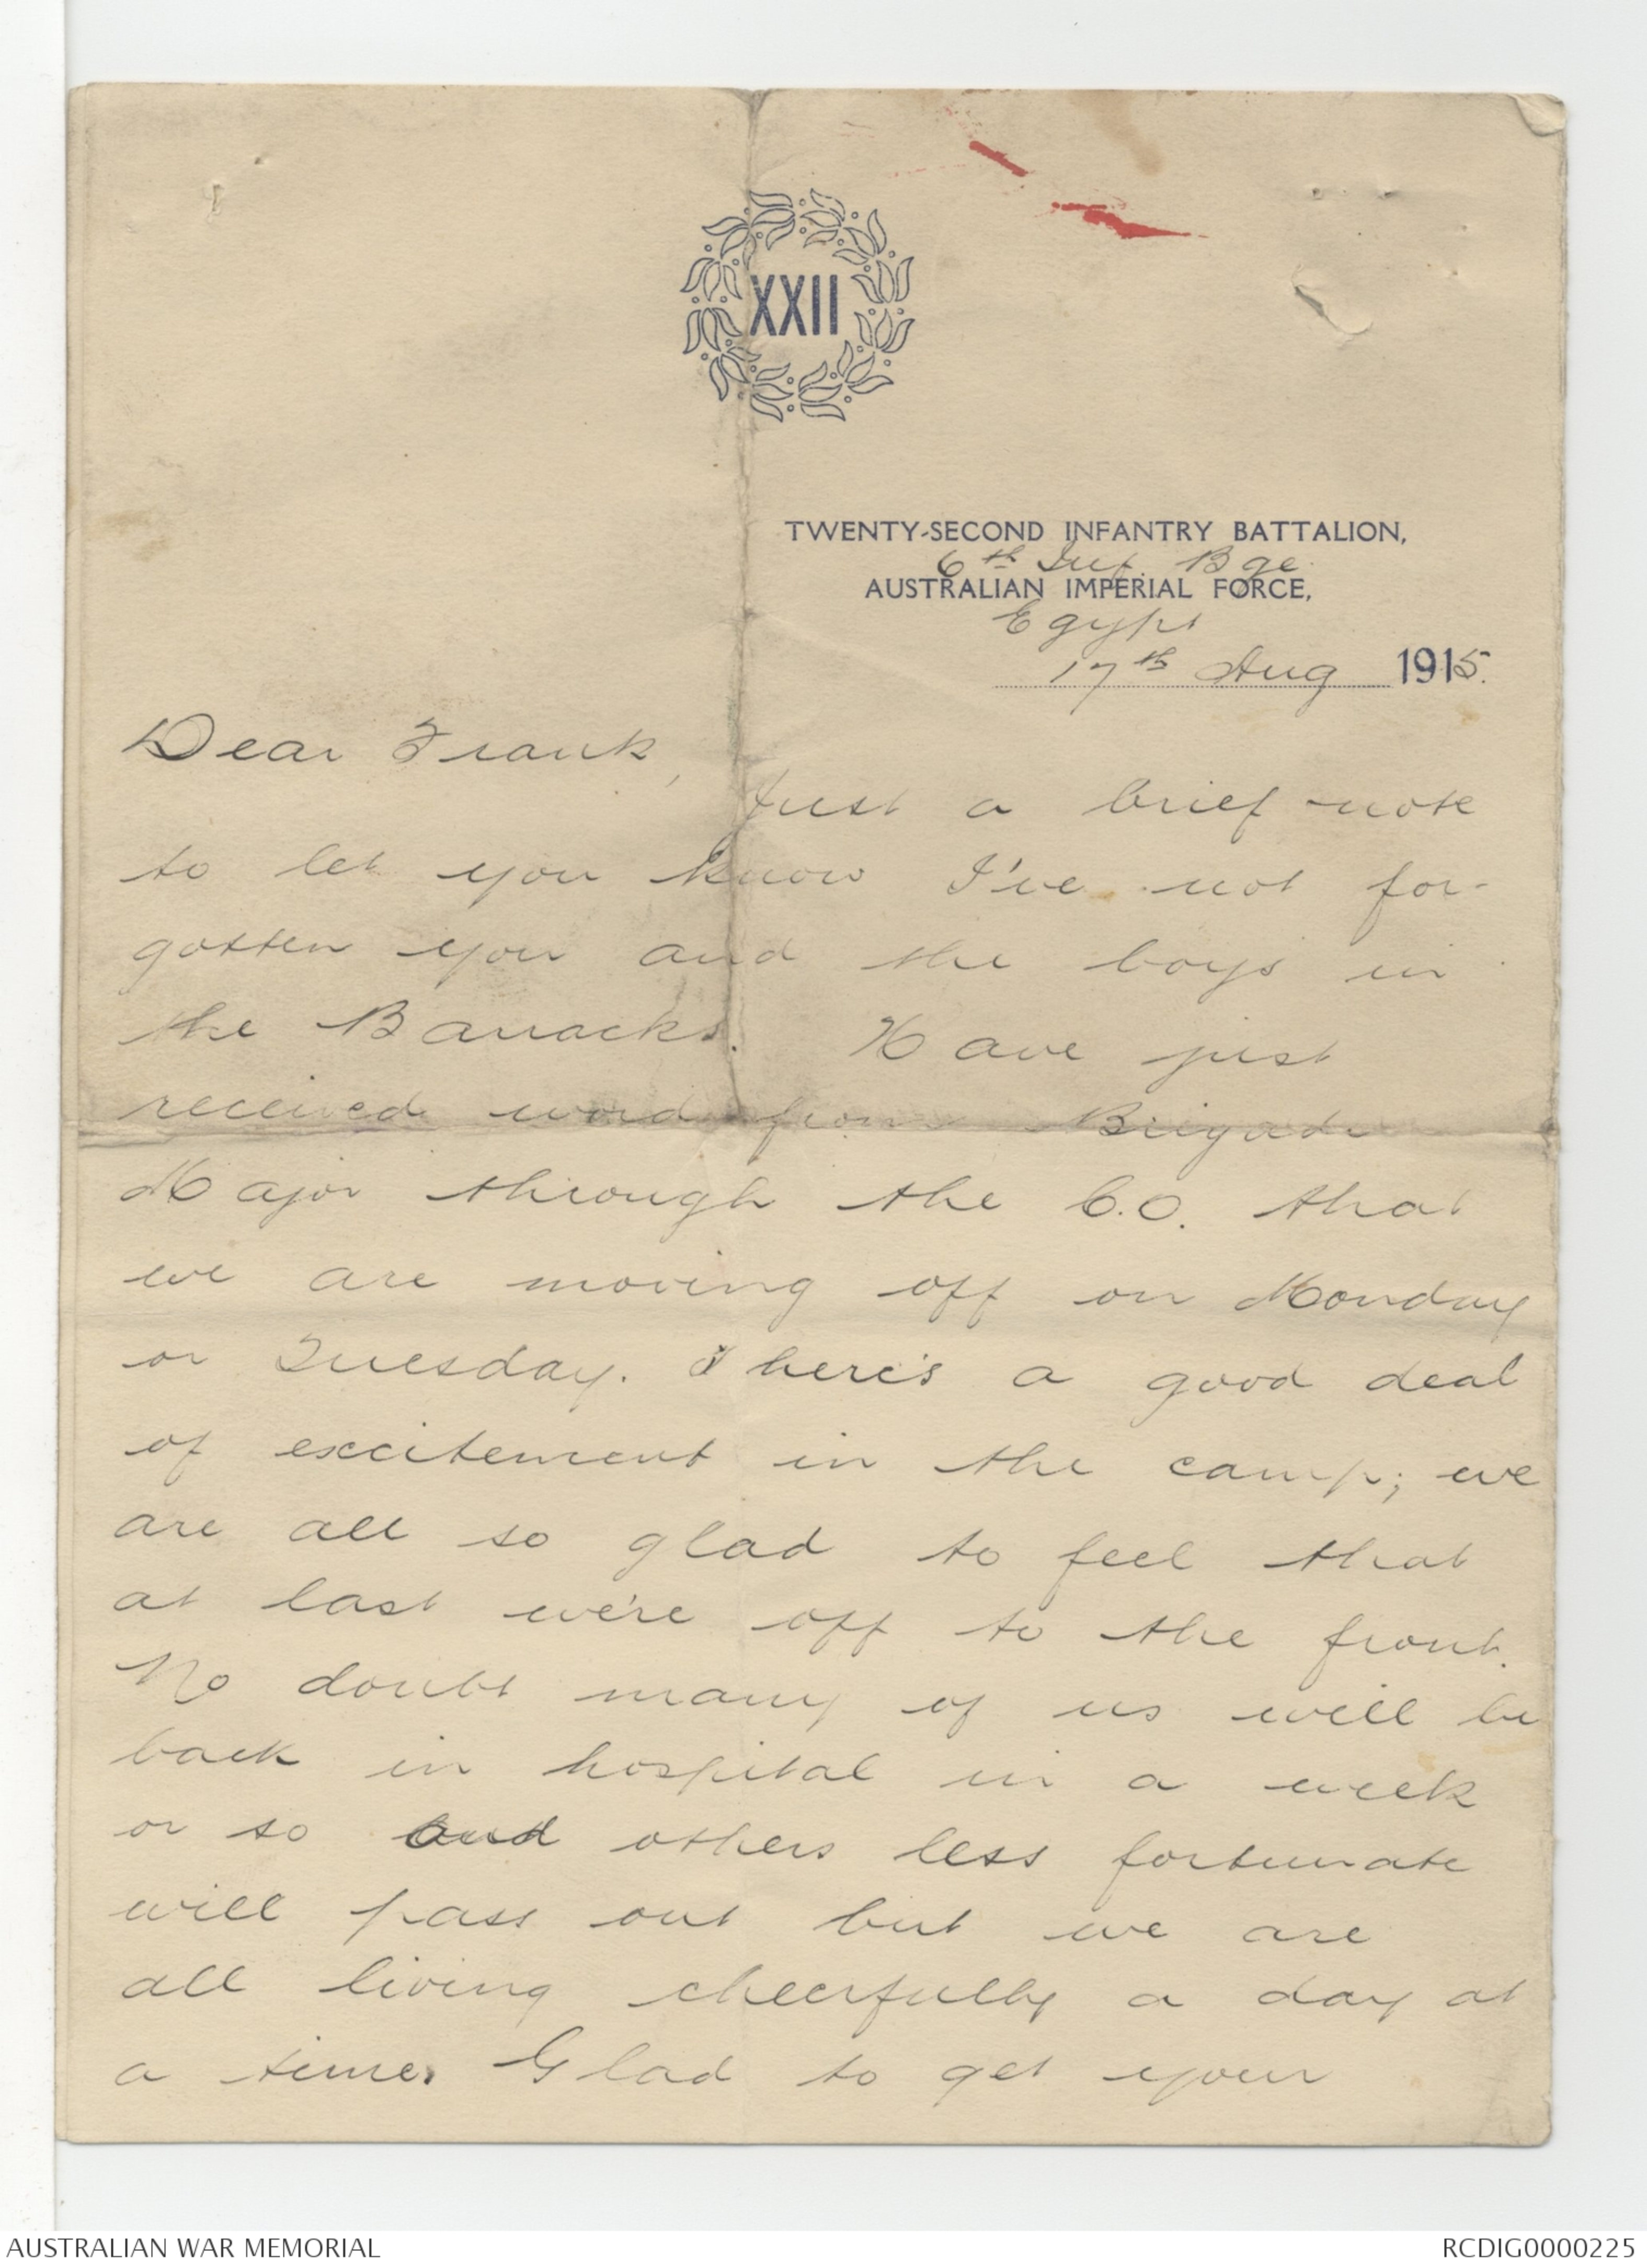 XXII
TWENTY-SECOND INFANTRY BATTALION,
6th Inf. Bge.
AUSTRALIAN IMPERIAL FORCE,
Egypt
17th Aug 1915.
Dear Frank,
Just a brief note
to let you know I've not for-
gotten you and the boys in
the Barracks. Have just
received word from Brigade
Major through the C.O. that
we are moving off on Monday
or Tuesday. There's a good deal
of excitement in the camp; we
are all so glad to feel that
at last we're off to the front.
No doubt many of us will be
back in hospital in a week
or so and others less fortunate
will pass out but we are
all living cheerfully a day at
a time. Glad to get your
AUSTRALIAN WAR MEMORIAL
RCDIG0000225